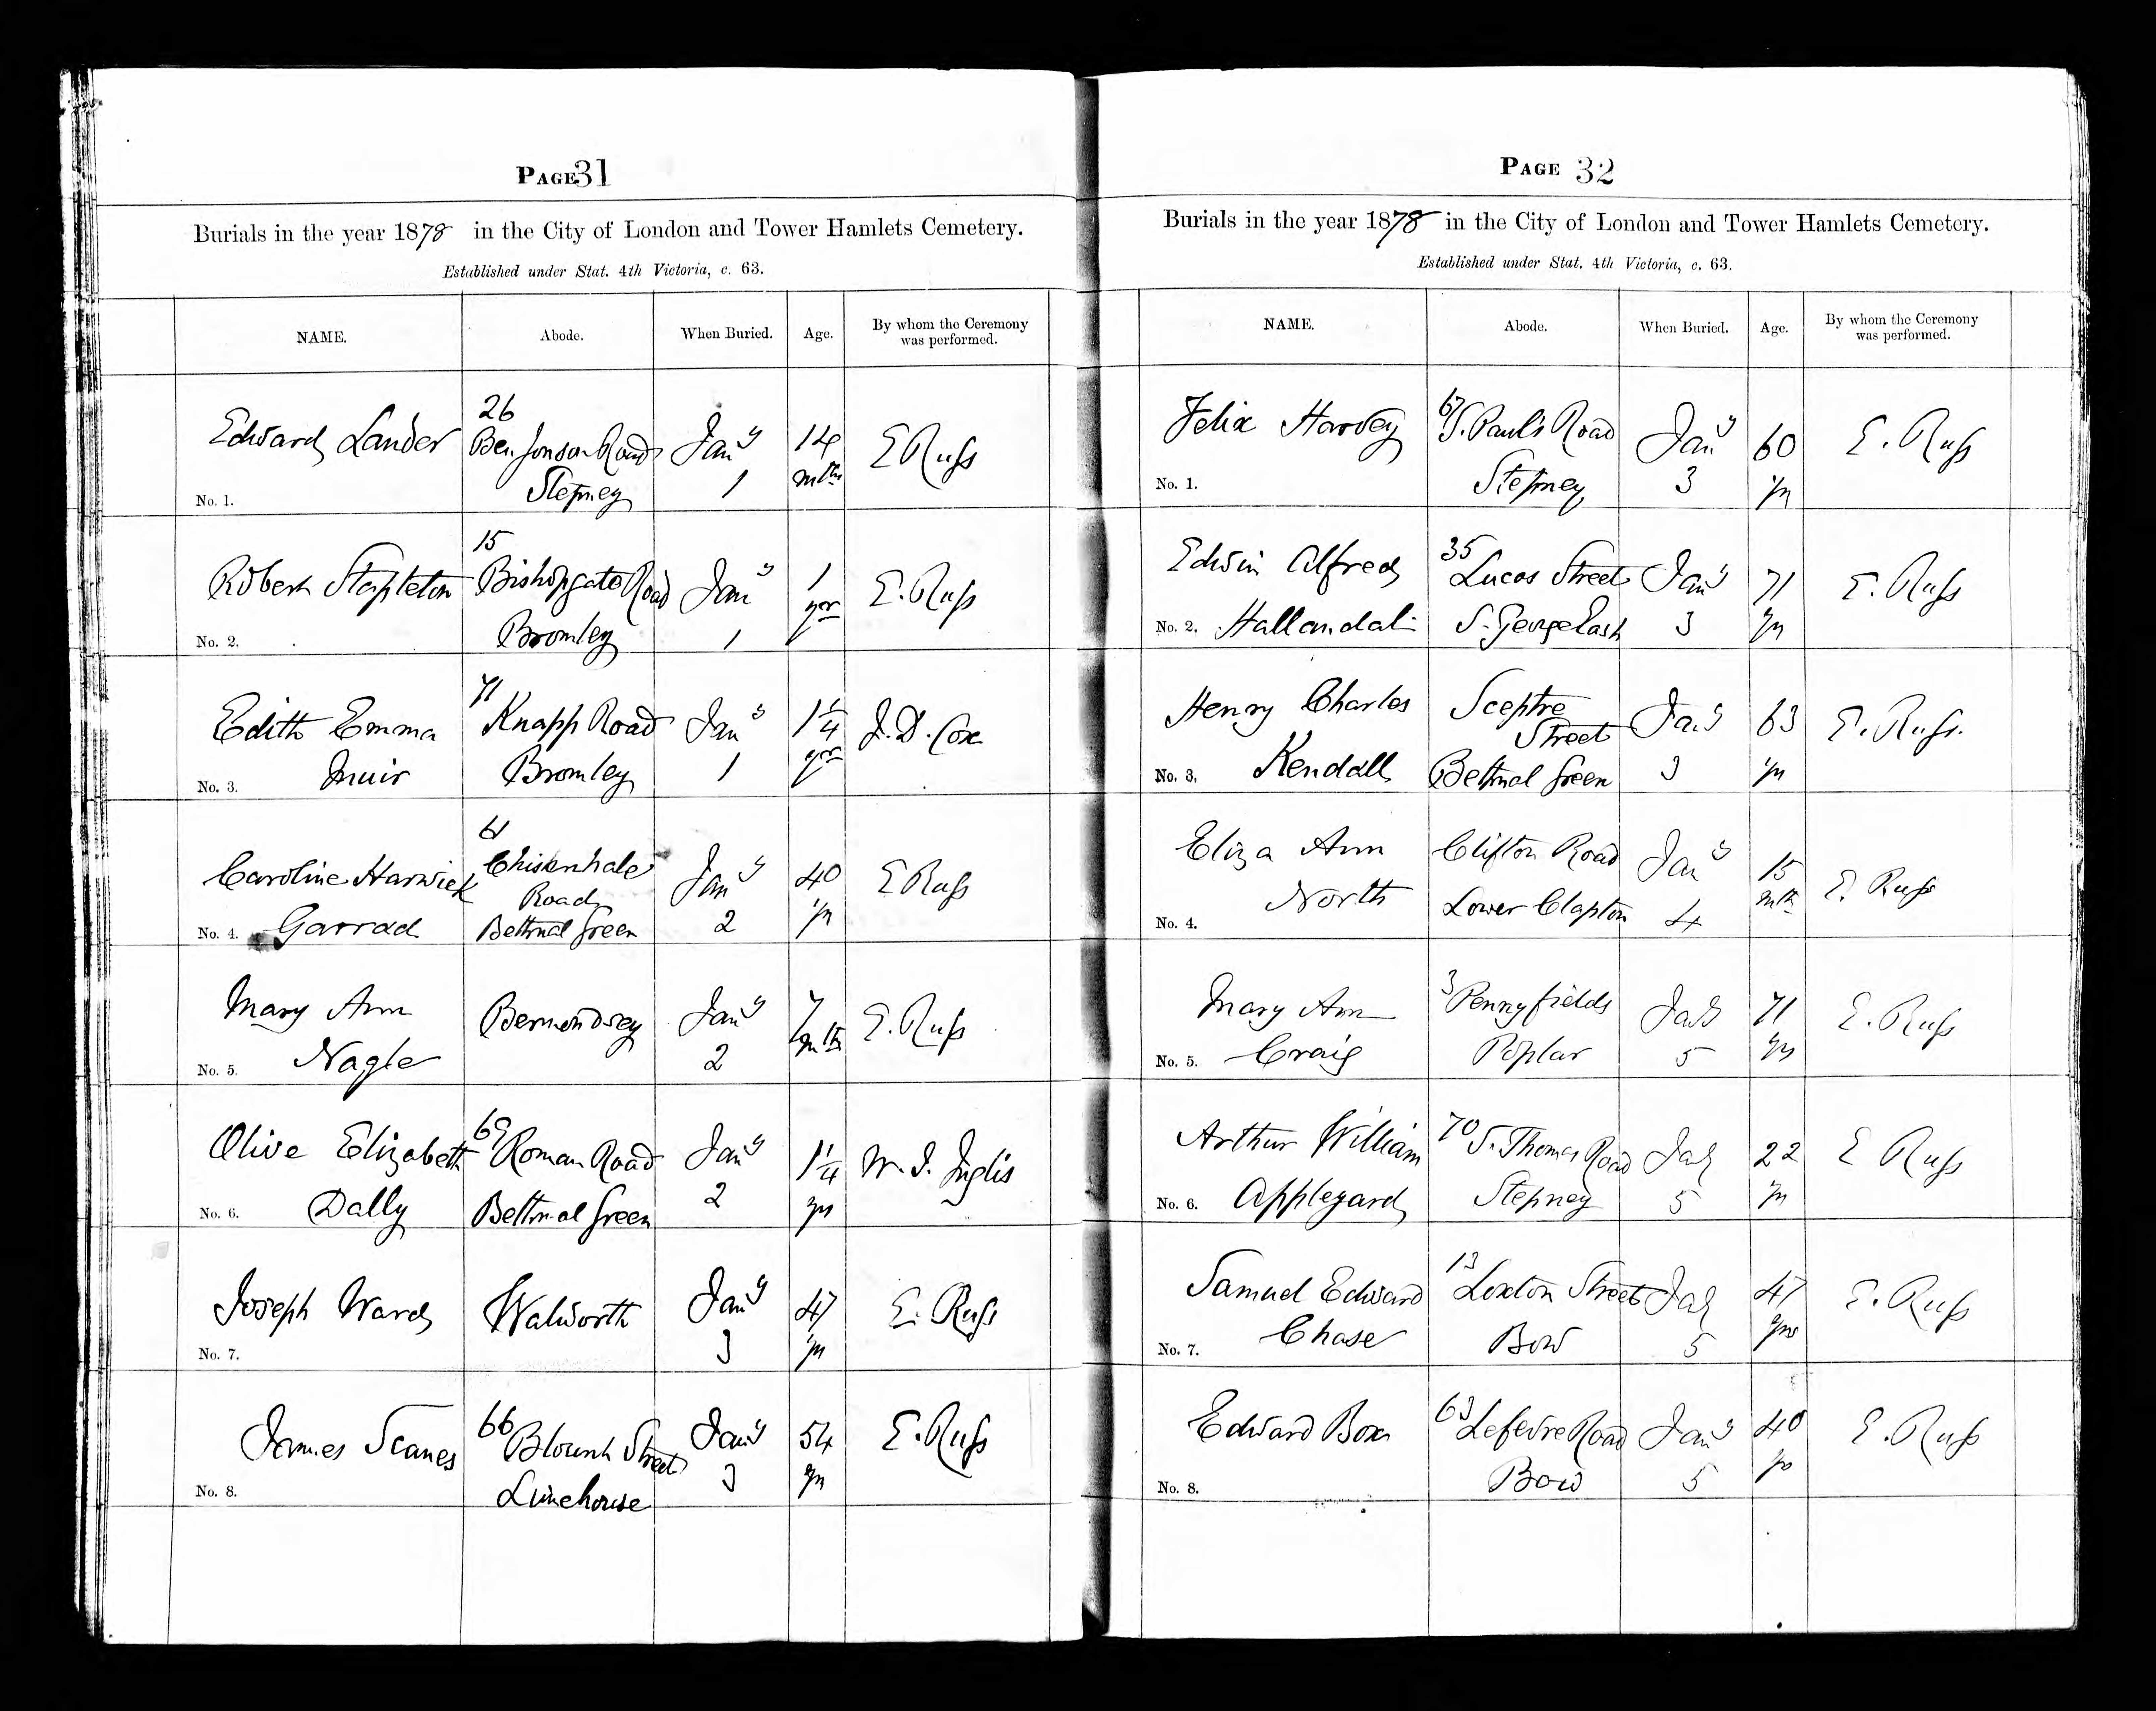 PAGE 31
Burials in the year 1878 in the City of London and Tower Hamlets Cemetery.
Established under Stat. 4th Victoria, c. 63.
NAME. Abode. When Buried. Age. By whom the Ceremony was performed.
26
Edward Lander Ben Jonson Road Jany 14 E Russ
No. 1. Stepney 1 mths
15
Robert Stapleton Bishopgate Road Jany 1 E. Russ
No. 2. Bromley 1 yr
71
Edith Emma Knapp Road Jany 1 1/4 J. D. Cox
No. 3. Muir Bromley 1 yr
61
Caroline Harwick Chisenhale Road Jany 40 E Russ
No. 4. Garrad Bethnal Green 2 yrs
Mary Ann Bermondsey Jany 7 E. Russ
No. 5. Nagle 2 mths
69
Olive Elizabeth Roman Road Jany 1 1/4 W. I. Inglis
No. 6. Dally Bethnal Green 2 yrs
Joseph Ward Walworth Jany 47 E. Russ
No. 7. 3 yrs
James Scanes 66 Blount Street Jany 54 E. Russ
No. 8. Limehouse 3 yrs
PAGE 32
Burials in the year 1878 in the City of London and Tower Hamlets Cemetery.
Established under Stat. 4th Victoria, c. 63.
NAME. Abode. When Buried. Age. By whom the Ceremony was performed.
Felix Harvey S. Pauls Road Jany 60 E. Russ
No. 1. Stepney 3 yrs
Edwin Alfred 35 Lucas Street Jany 71 E. Russ
No. 2. Hallandal S. George East 3 yrs
Henry Charles Sceptre Street Jany 63 E. Russ.
No. 3. Kendall Bethnal Green 3 yrs
Eliza Ann Clifton Road Jany 15 E. Russ
No. 4. North Lower Clapton 4 mths
Mary Ann 3 Pennyfields Jany 71 E. Russ
No. 5. Craig Poplar 5 yrs
Arthur William 70 S. Thomas Road Jany 22 E Russ
No. 6. Appleyard Stepney 5 yrs
Samuel Edward 13 Loxton Street Jany 47 E. Russ
No. 7. Chase Bow 5 yrs
Edward Box 63 Lefevre Road Jany 40 E. Russ
No. 8. Bow 5 yrs